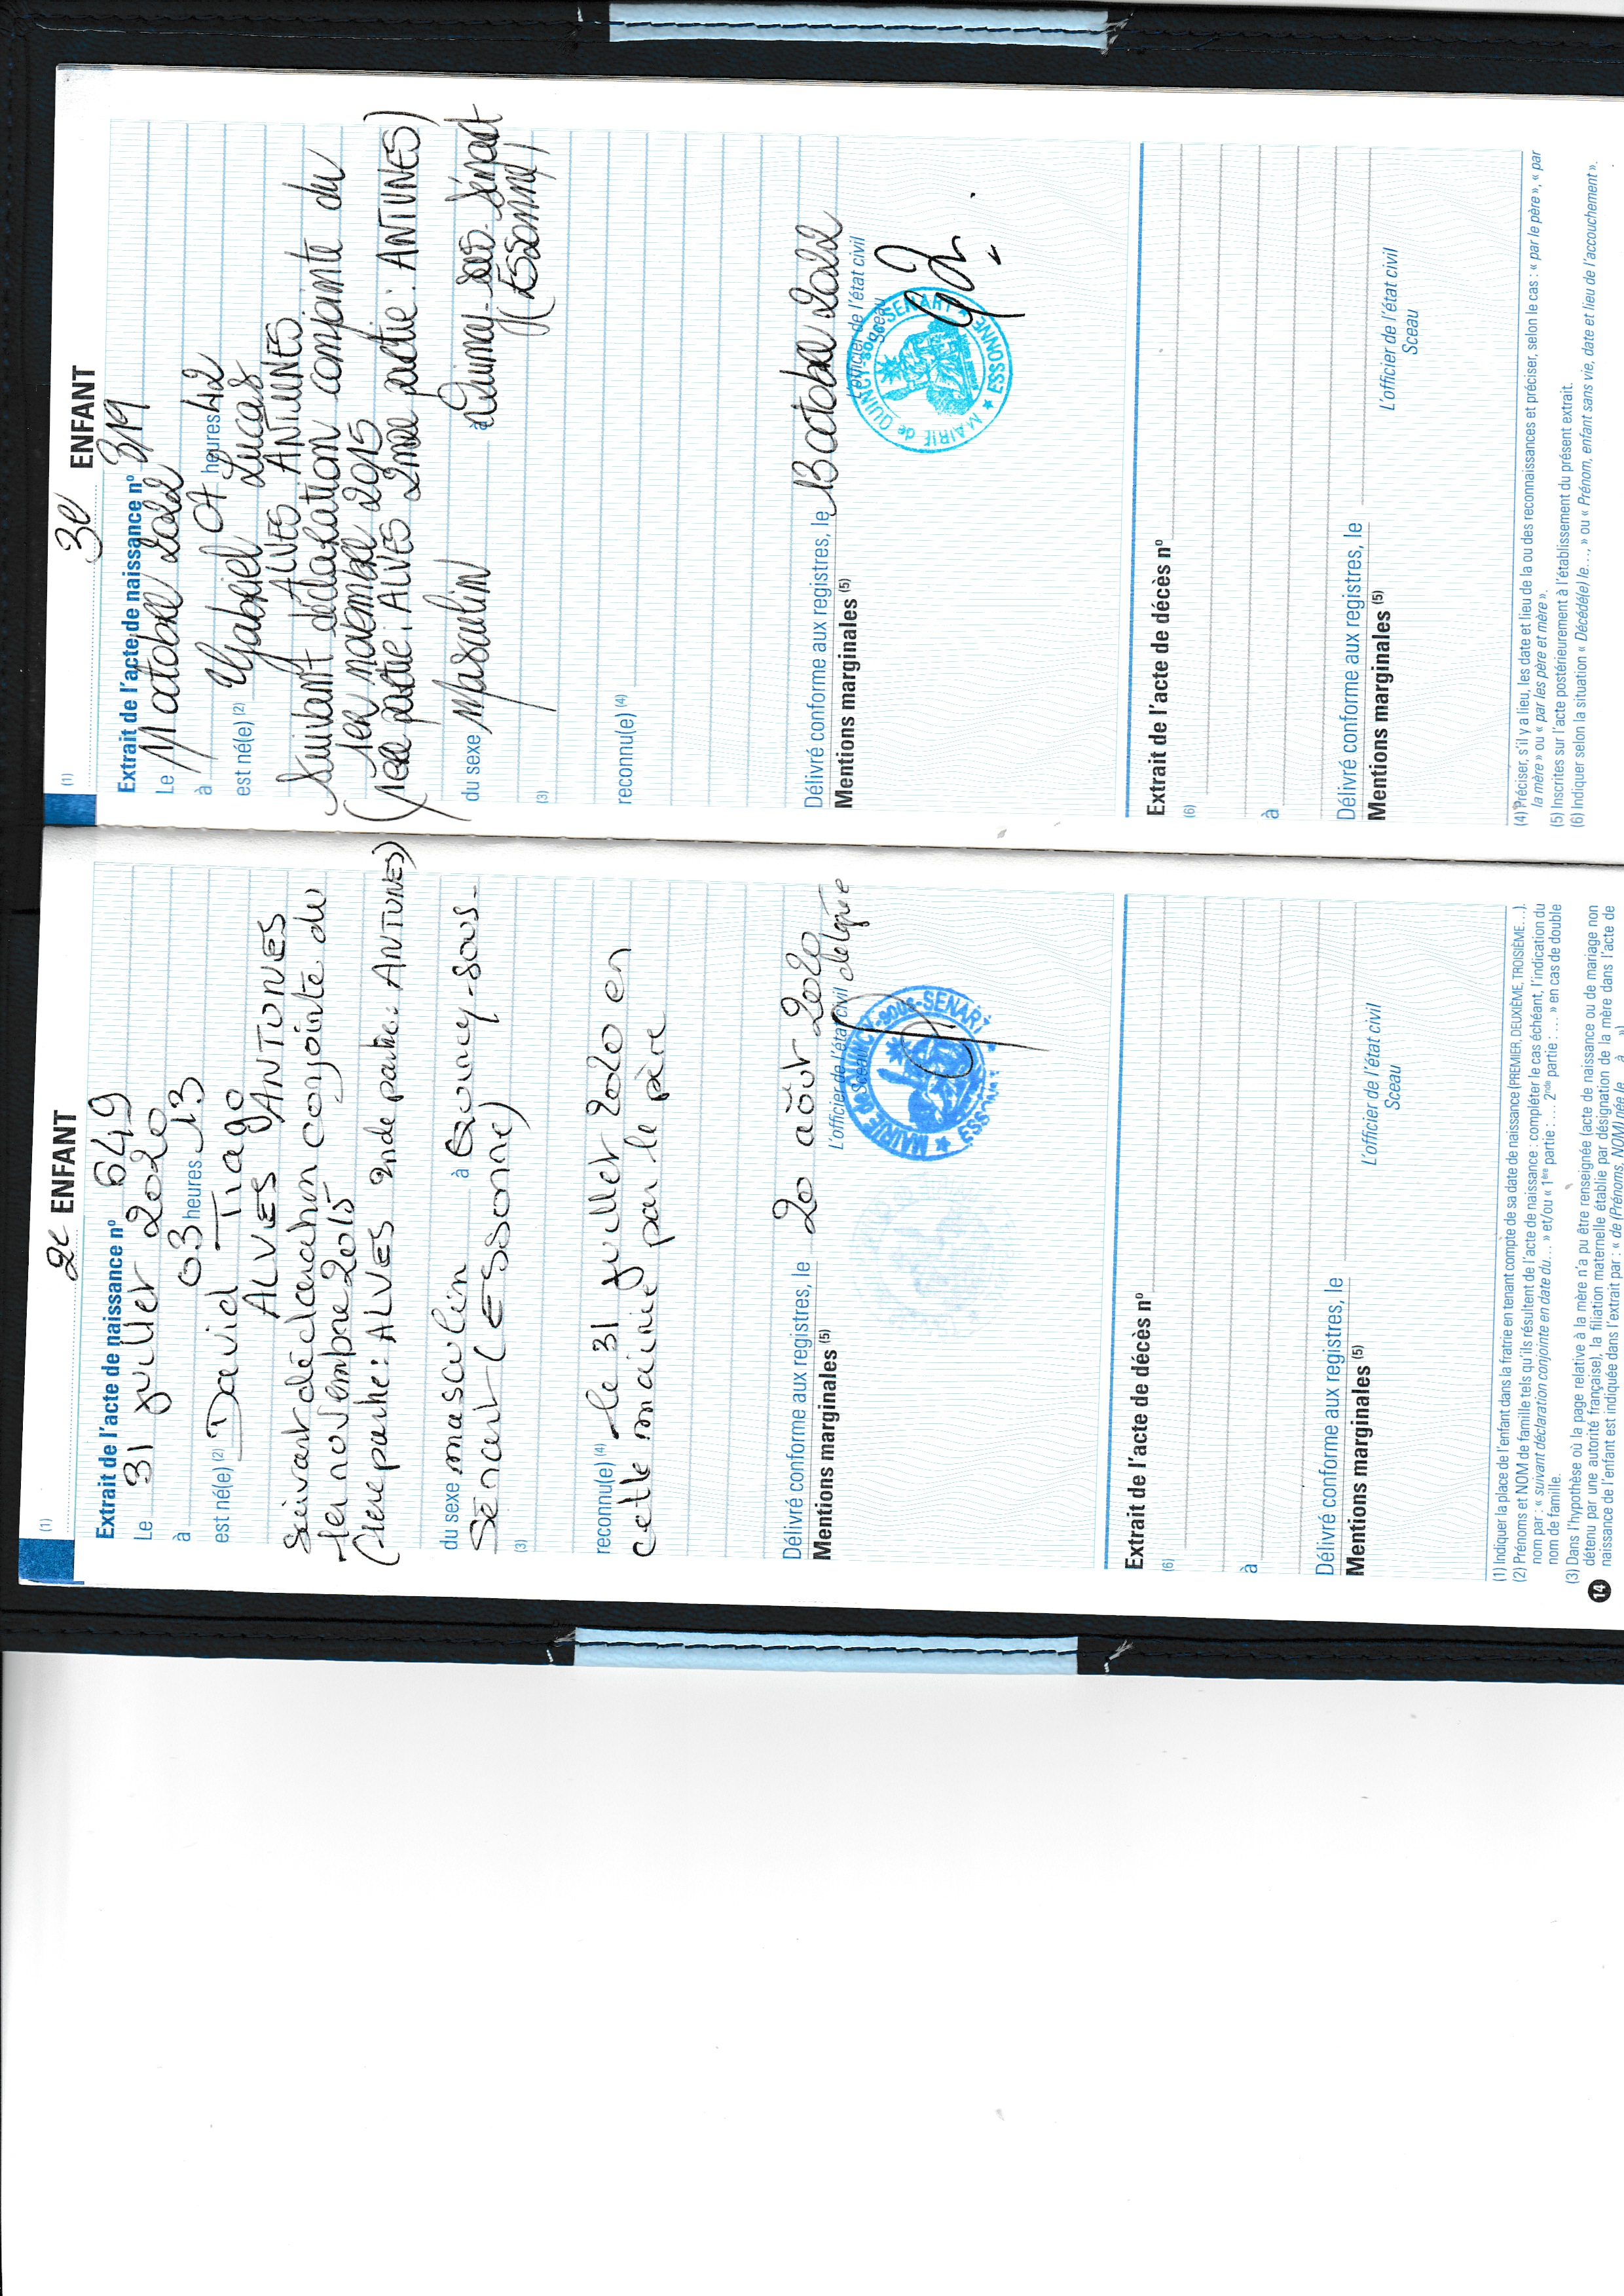 (1) 2e ENFANT
Extrait de l'acte de naissance nº 649
Le 31 juillet 2020
à 03 heures 13
est né(e) (2) David Tiago
ALVES ANTUNES
Suivant déclaration conjointe du
1er novembre 2015
(1ere partie: ALVES 2nde partie: ANTUNES)
du sexe masculin à Quincy-sous-
Sénart (ESSONNE)
(3)
reconnu(e) (4) le 31 juillet 2020 en
cette mairie par le père
Délivré conforme aux registres, le 20 août 2020
Mentions marginales (5) L'officier de l'état civil déléguée
Sceau
MAIRIE de QUINCY-sous-SENART ★ ESSONNE ★
Extrait de l'acte de décès nº
(6)
à
Délivré conforme aux registres, le
Mentions marginales (5) L'officier de l'état civil
Sceau
(1) Indiquer la place de l'enfant dans la fratrie en tenant compte de sa date de naissance (PREMIER, DEUXIÈME, TROISIÈME…).
(2) Prénoms et NOM de famille tels qu'ils résultent de l'acte de naissance : compléter le cas échéant, l'indication du
nom par : « suivant déclaration conjointe en date du… » et/ou « 1ère partie : … 2nde partie : … » en cas de double
nom de famille.
(3) Dans l'hypothèse où la page relative à la mère n'a pu être renseignée (acte de naissance ou de mariage non
détenu par une autorité française), la filiation maternelle établie par désignation de la mère dans l'acte de
naissance de l'enfant est indiquée dans l'extrait par : « de (Prénoms, NOM) née le… à… »)
14
(1) 3e ENFANT
Extrait de l'acte de naissance nº 319
Le 11 octobre 2022
à 07 heures 42
est né(e) (2) Gabriel Lucas
ALVES ANTUNES
Suivant déclaration conjointe du
1er novembre 2015
(1ère partie: ALVES 2nde partie: ANTUNES)
du sexe Masculin à Quincy-sous-Sénart
(ESSONNE)
(3)
reconnu(e) (4)
Délivré conforme aux registres, le 13 octobre 2022
Mentions marginales (5) L'officier de l'état civil
Sceau
MAIRIE de QUINCY sous SENART ★ ESSONNE ★
Extrait de l'acte de décès nº
(6)
à
Délivré conforme aux registres, le
Mentions marginales (5) L'officier de l'état civil
Sceau
(4) Préciser, s'il y a lieu, les date et lieu de la ou des reconnaissances et préciser, selon le cas : « par le père », « par
la mère » ou « par les père et mère ».
(5) Inscrites sur l'acte postérieurement à l'établissement du présent extrait.
(6) Indiquer selon la situation « Décédé(e) le… » ou « Prénom, enfant sans vie, date et lieu de l'accouchement ».